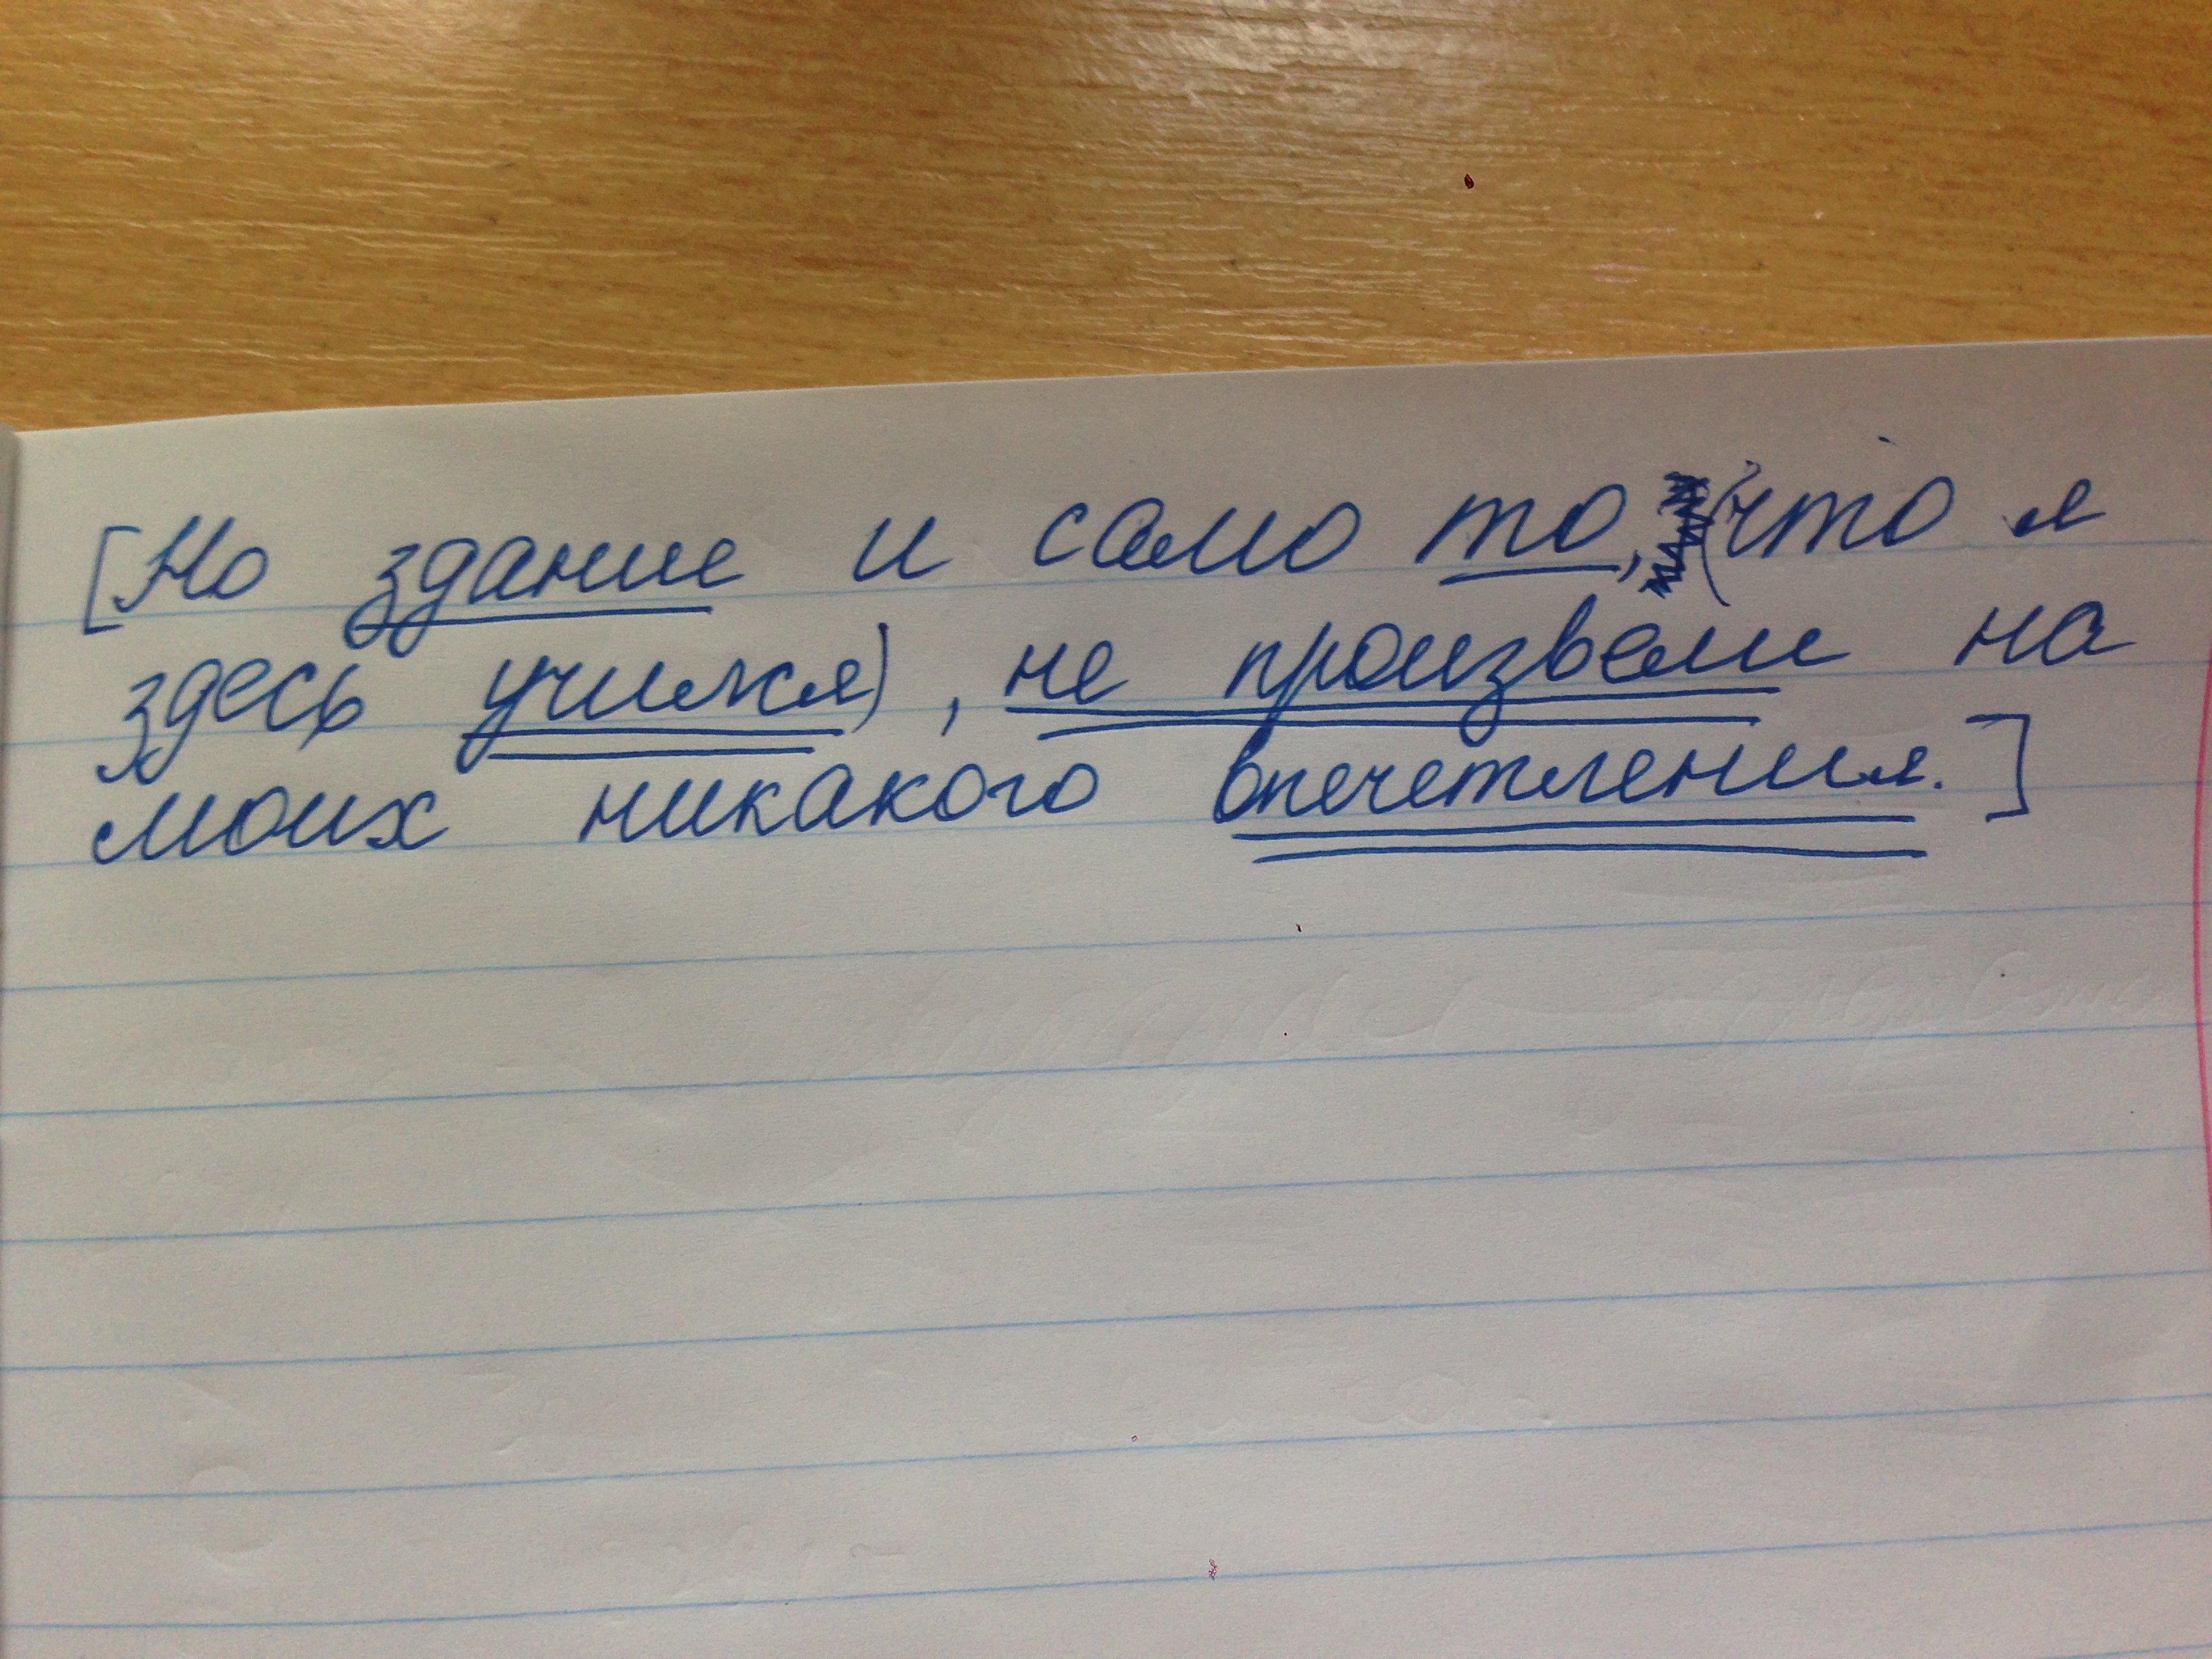 [Но здание и само то, (что я
здесь учился), не произвели на
моих никакого впечетления.]